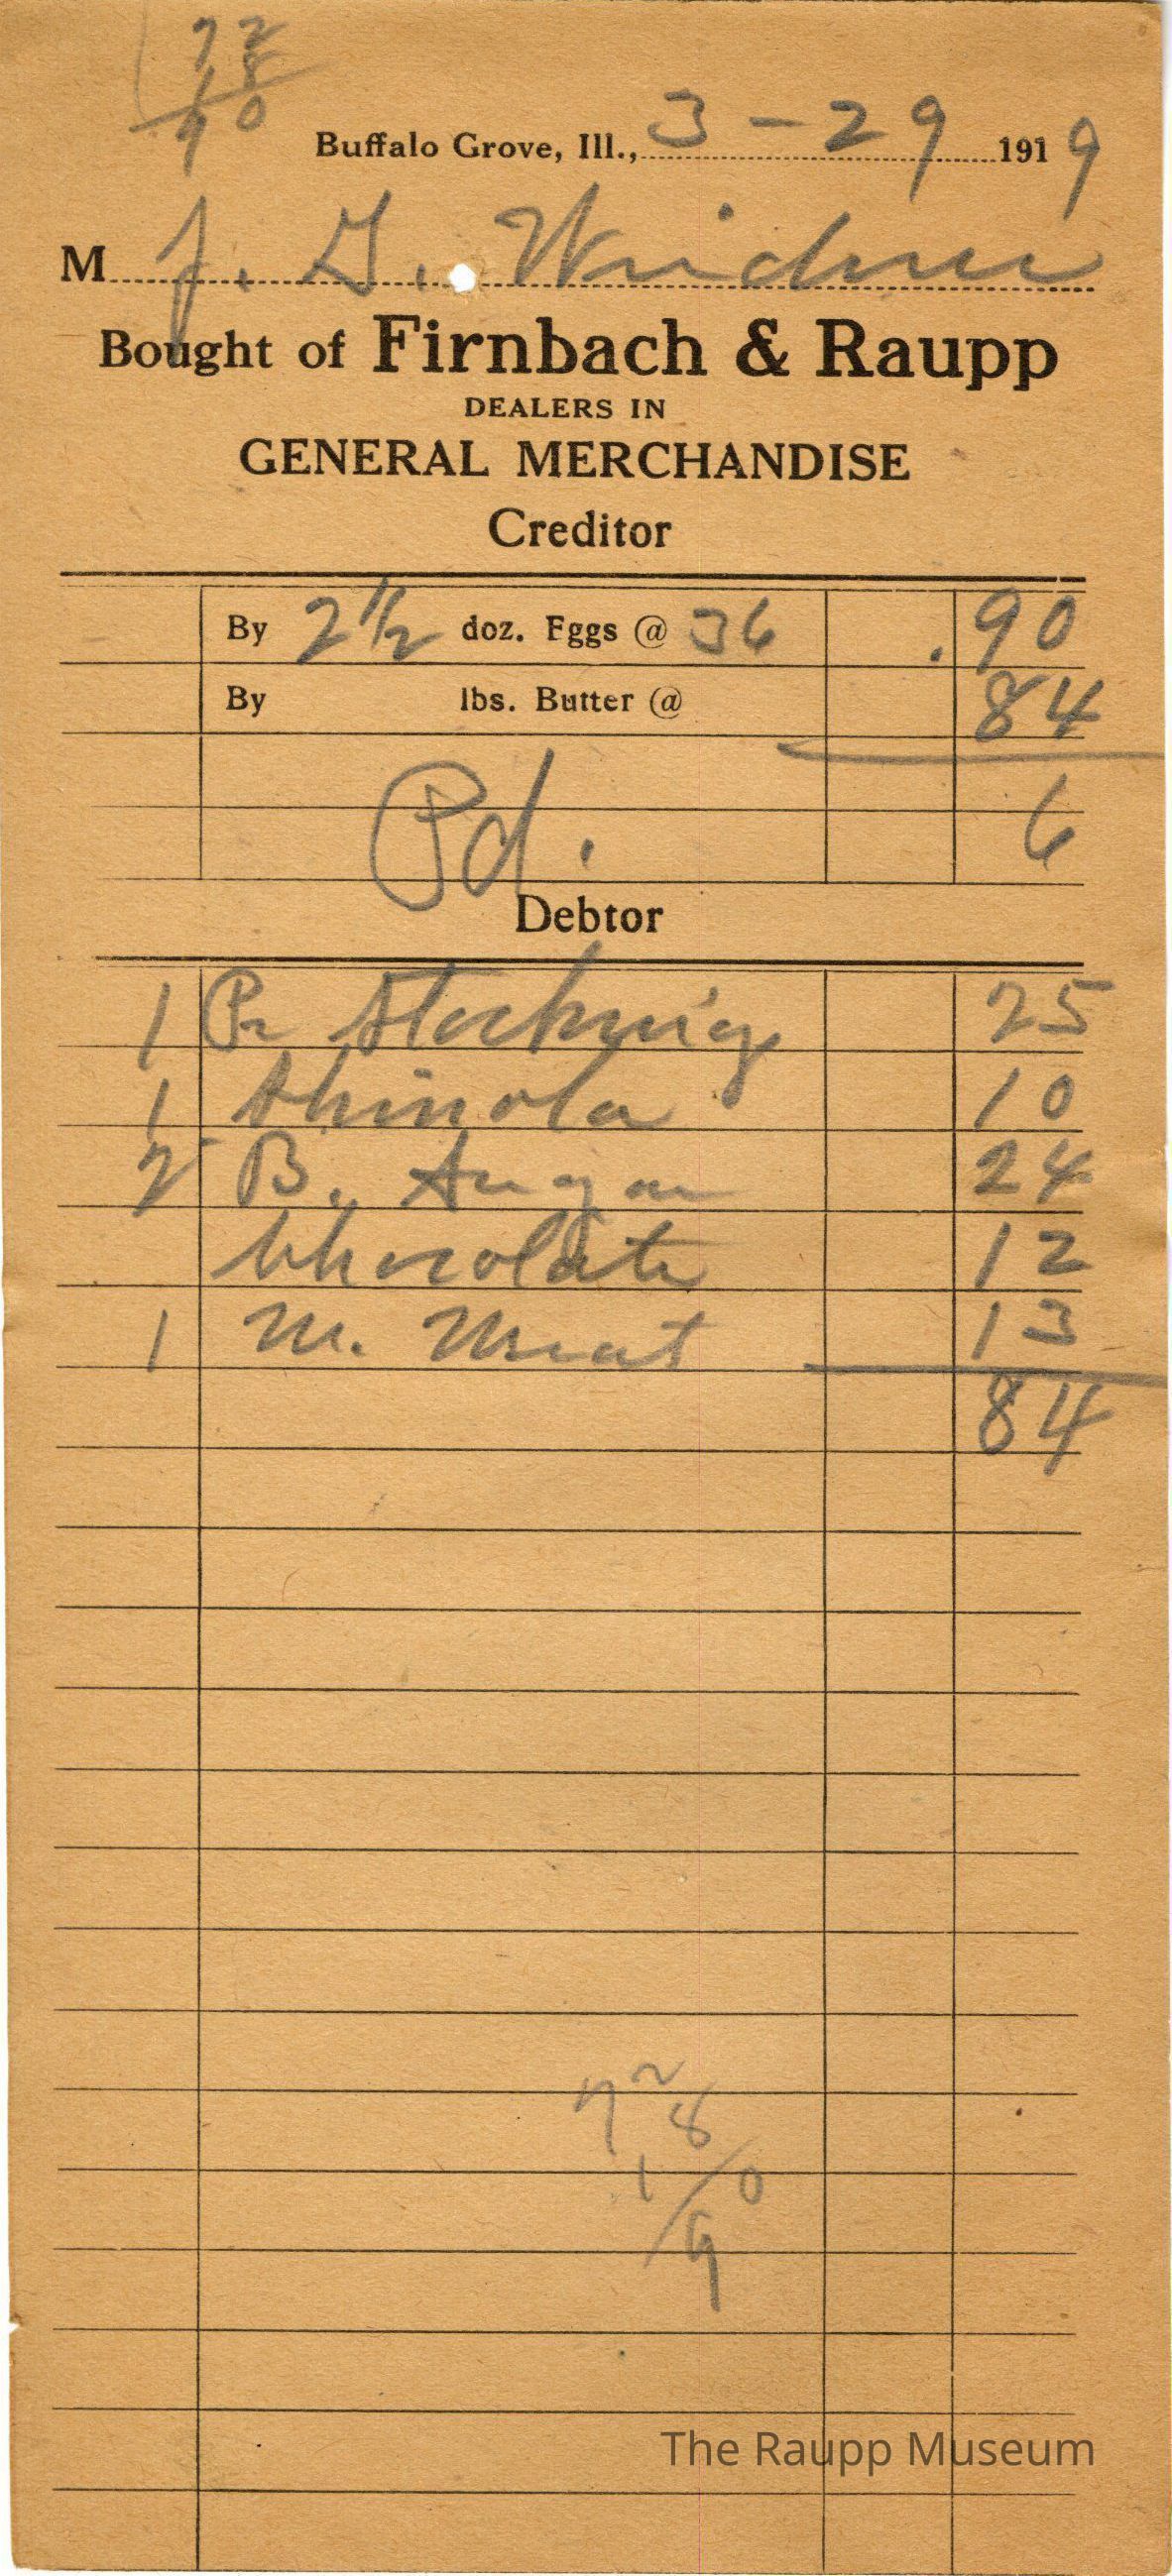 72
8
10
9
Buffalo Grove, Ill., 3 - 29 1919
M J. G. Weidner
Bought of Firnbach & Raupp
DEALERS IN
GENERAL MERCHANDISE
Creditor
By 2 1/2 doz. Eggs @ 36 .90
By lbs. Butter @ 84
6
Pd.
Debtor
1 Pr Stockings 25
1 Shinola 10
2 B. Sugar 24
Chocolate 12
1 M. Meat 13
84
72
8
10
9
The Raupp Museum